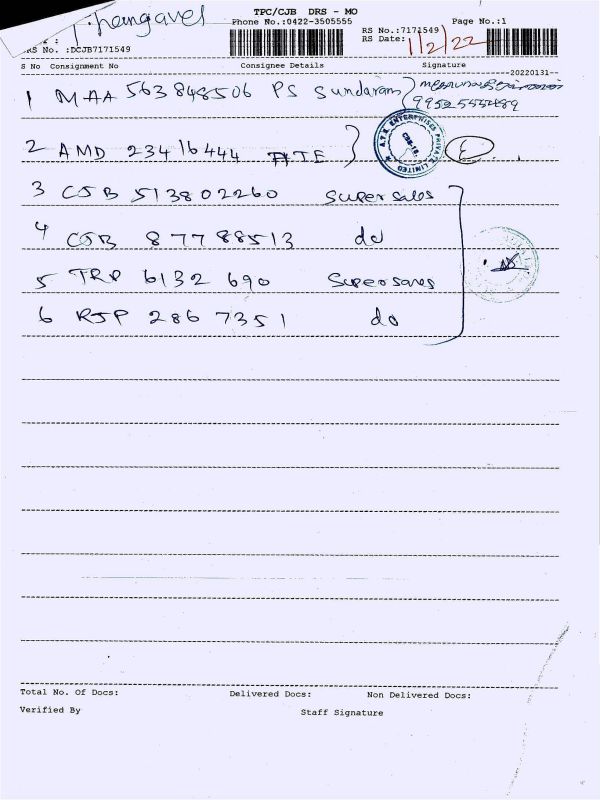 TPC/CJB DRS - MO
Phone No.:0422-3505555 Page No.:1
RS No.:7171549
RS Date: 1/2/22
RS No. :DCJB7171549
S No Consignment No Consignee Details Signature
--20220131--
1 MAA 563848506 PS Sundaram
2 AMD 23416444
A.T.E. ENTERPRISES PRIVATE LIMITED
CBE-18.
3 CJB 513802260 Super sales
4 CJB 87788513 do
5 TRP 6132690 Super sales
6 RJP 2867351 do
Total No. Of Docs: Delivered Docs: Non Delivered Docs:
Verified By Staff Signature